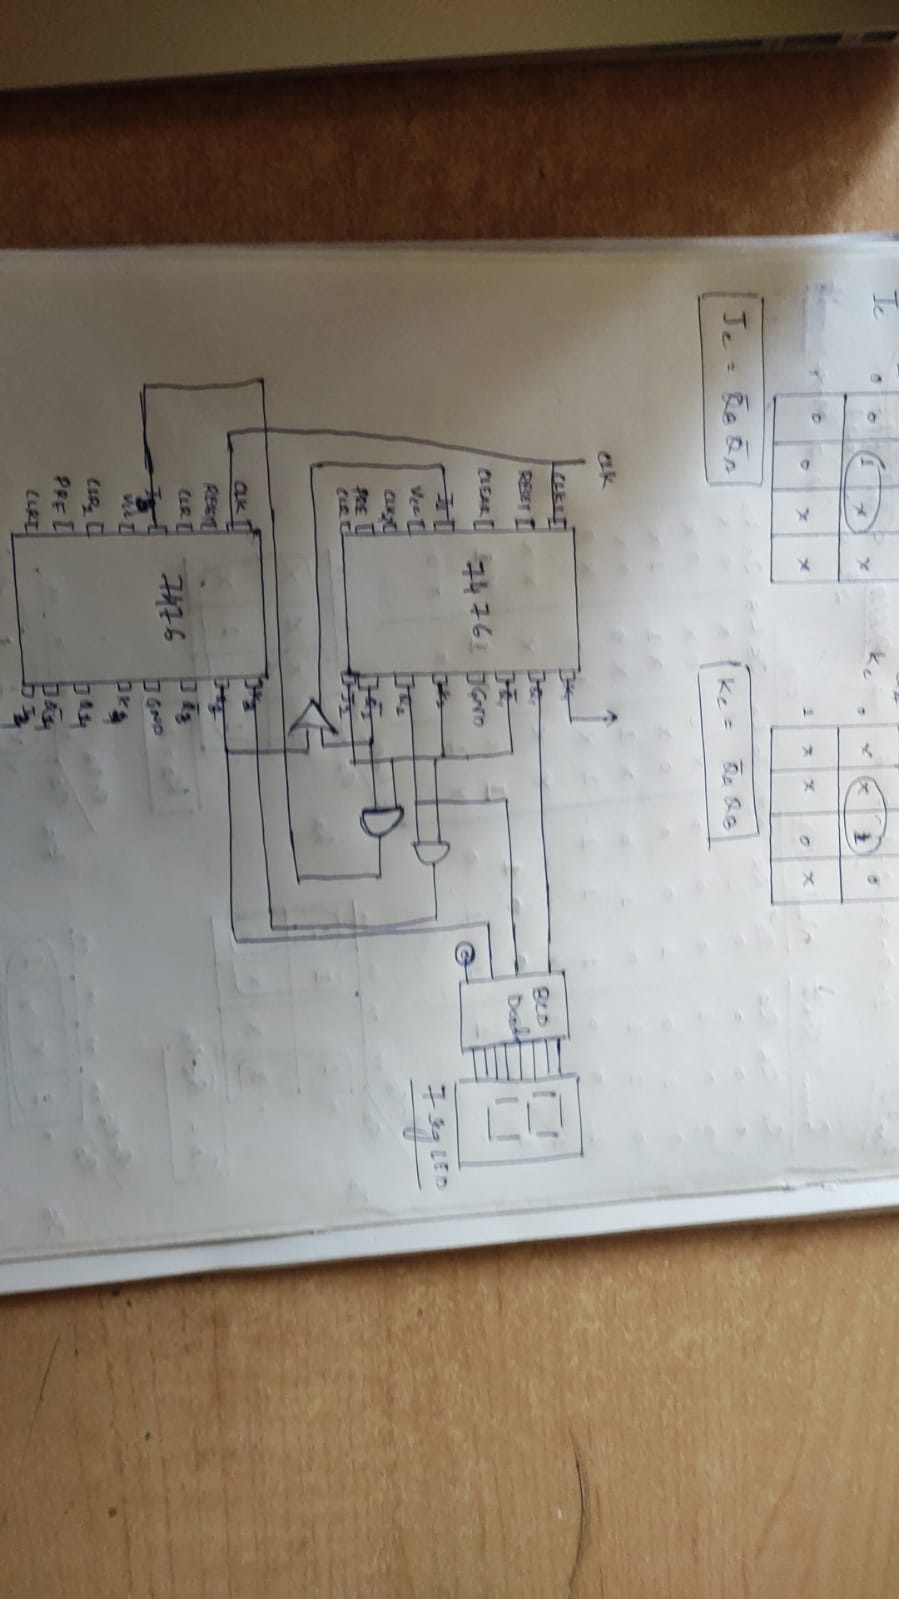 Jc 0 0 1 x x
1 0 0 x x
Kc 0 x x 1 0
1 x x 0 x
Jc = Q̄B Q̄A
Kc = Q̄A QB
CLK
CLK1
RESET
CLEAR
J1
Vcc
CLK2
PRE
CLR
7476
K1
Q1
Q̄1
GND
K2
Q2
Q̄2
J2
BCD
7 seg LED
CLK
RESET
CLR
J3
Vcc
CLR2
PRE
CLR
7476
K3
Q3
Q̄3
GND
K4
Q4
Q̄4